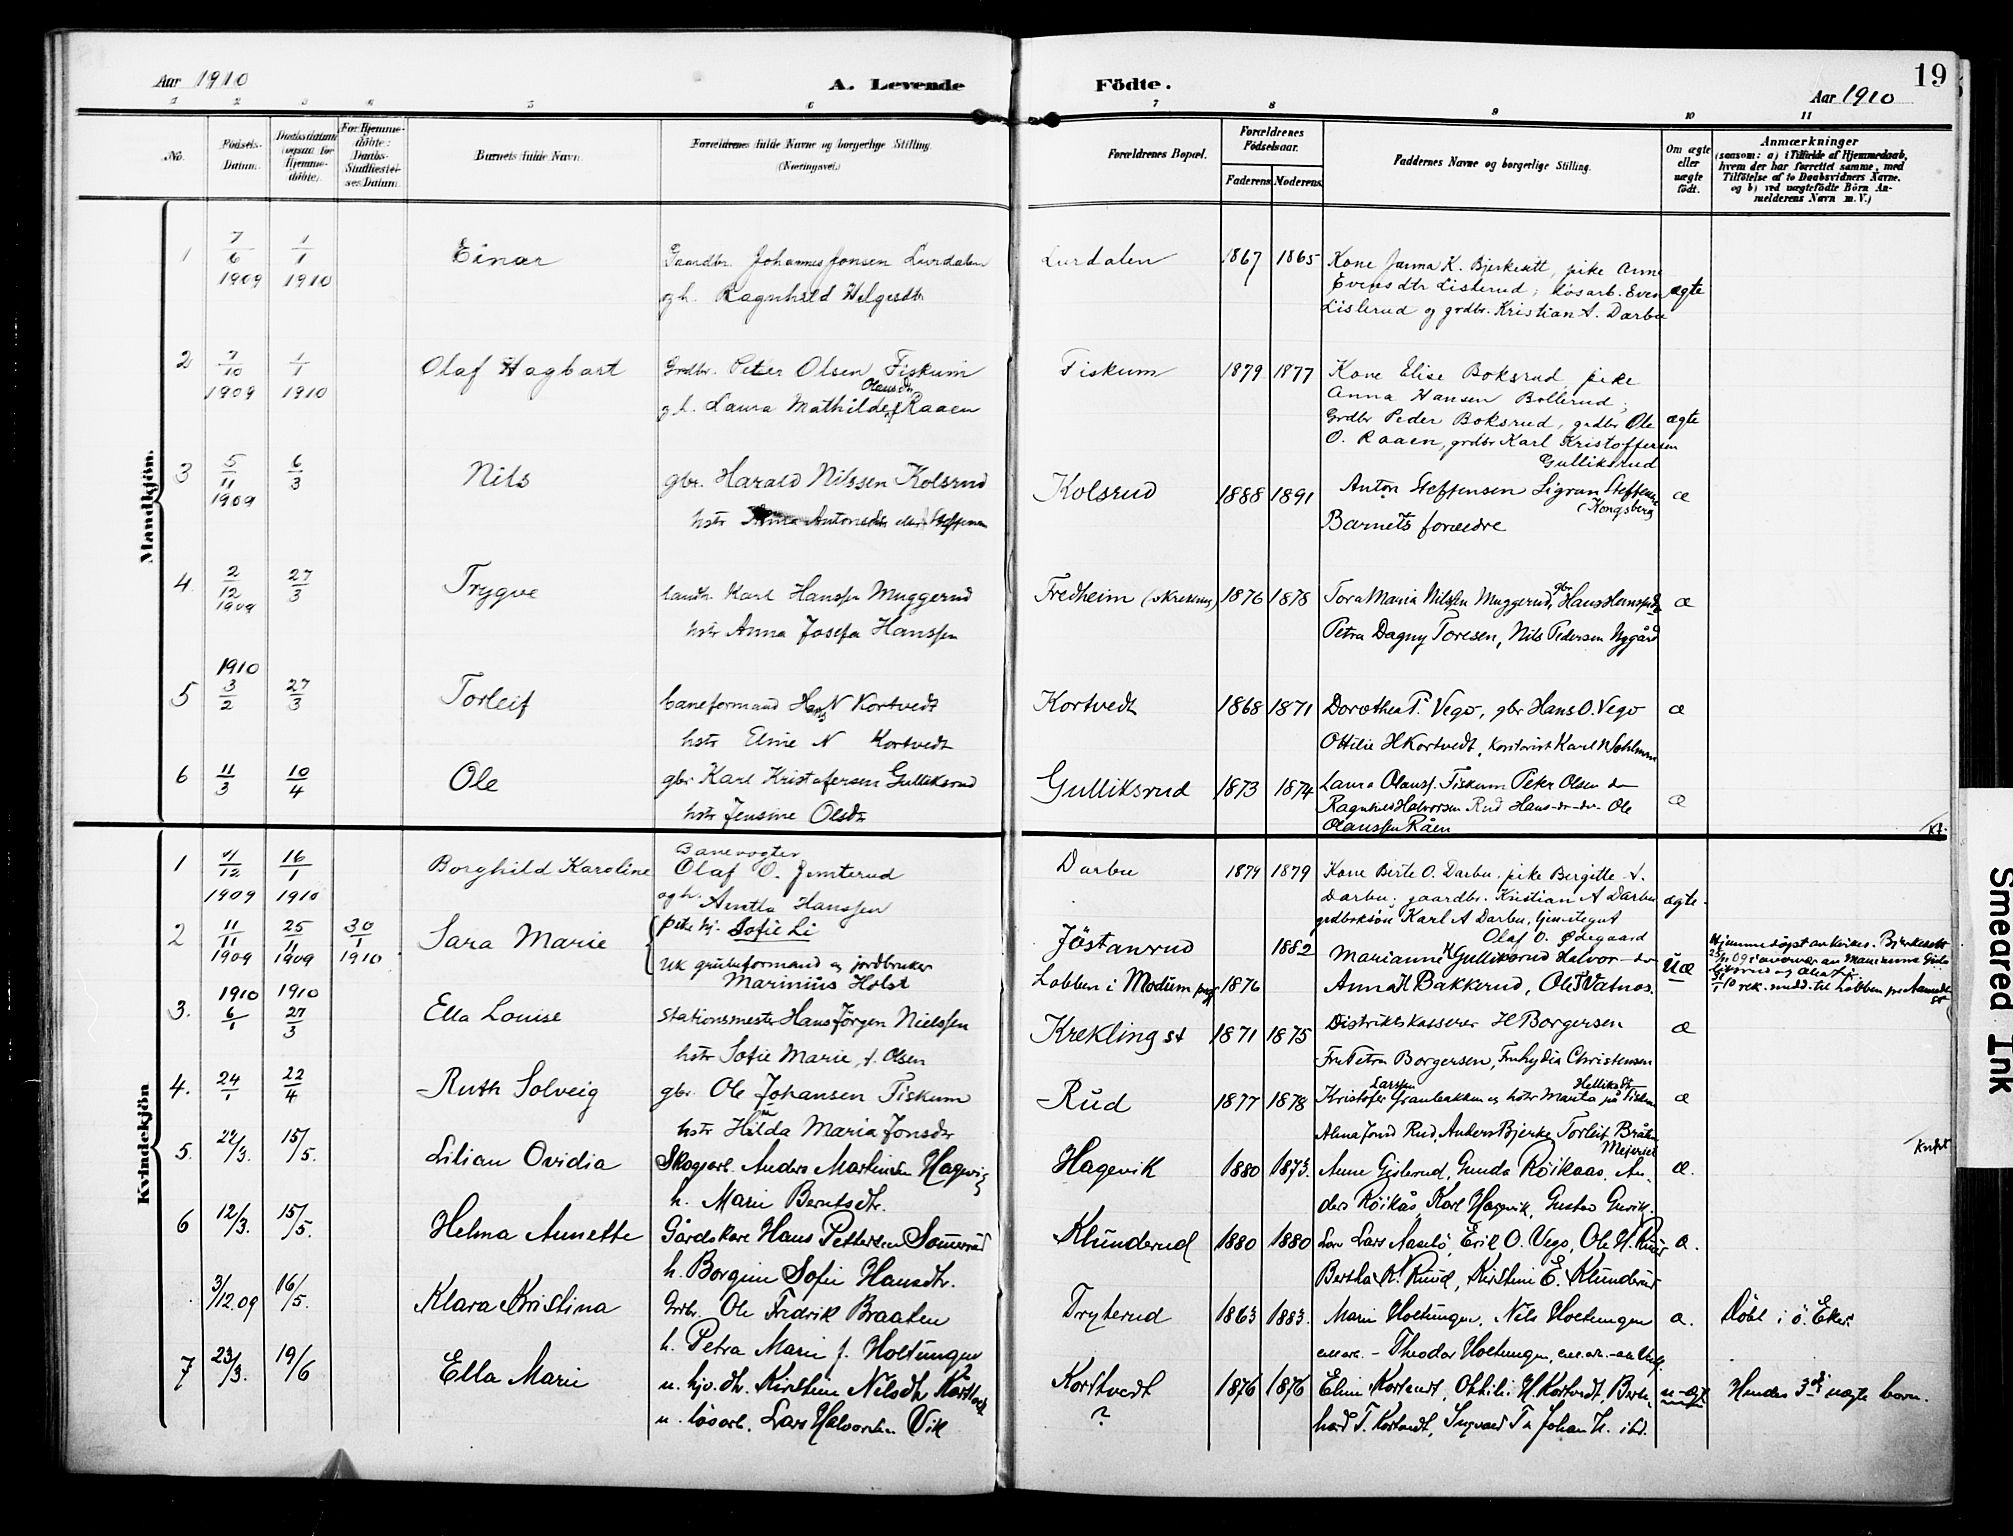 Aar 1910
A. Levende
Födte.
19
Aar 1910
1 2 3 4 5 6 7 8 9 10 11
No.
Födsels-Datum.
Daabsdatum (ogsaa for Hjemmedöbte).
For Hjemmedöbte: Daabs-Stadfæstelses Datum.
Barnets fulde Navn.
Forældrenes fulde Navne og borgerlige Stilling.
(Næringsvei.)
Forældrenes Bopæl.
Forældrenes Födselsaar.
Faderens. Moderens.
Faddernes Navne og borgerlige Stilling.
Om ægte eller uægte födt.
Anmærkninger
(saasom: a) i Tilfælde af Hjemmedaab,
hvem der har forrettet samme, med
Tilföielse af to Daabsvidners Navne,
og b) ved uægtefödte Börn An-
melderens Navn m. V.)
Mandkjön.
1 7/6 1909 1/1 1910 Einar Gaardbr. Johannes Jonsen Lurdalen Lurdalen 1867 1865 Kone Janna K. Bjerkesett, pike Anne
og h. Ragnhild Helgesdtr Evensdtr Lislerud; løsarb. Even ægte
Lislerud og grdbr. Kristian A. Darbu
2 7/10 1909 1/1 1910 Olaf Hagbart Grdbr. Peter Olsen Fiskum Fiskum 1879 1877 Kone Elise Boksrud, pike
Olausdtr
g h. Laura Mathilde f Raaen Anna Hansen Bollerud;
Grdbr Peder Boksrud, grdbr Ole ægte
O. Raaen, grdbr Karl Kristoffersen
Gulliksrud
3 5/11 1909 6/3 Nils gbr. Harald Nilssen Kolsrud Kolsrud 1888 1891 Anton Steffensen Sigrun Steffensen æ
(Kongsberg)
hstr Anna Antonsdtr Steffensen Barnets foræedre
4 2/12 1909 27/3 Trygve landh. Karl Hanssen Muggerud Fredheim 1876 1878 Tora Maria Nilssen Muggerud, gbr Hans Hanssen æ
hstr Anna Josefa Hanssen Petra Dagny Toresen, Nils Pedersen Nygård
5 1910 3/2 27/3 Torleif baneformand Hans N Kortvedt Kortvedt 1868 1871 Dorothea T. Vego, gbr Hans O. Vego æ
hstr Eline N Kortvedt Ottilie H Kortvedt, Karl N Sohlman
6 11/3 10/4 Ole gbr Karl Kristofersen Gulliksrud Gulliksrud 1873 1874 Laura Olausf. Fiskum Peter Olsen do æ
hstr Jensine Olsdtr Ragnhild Halvorsen Rud Hans do do Ole
Olaussen Råen
Kvindekjön
1 7/12 1909 16/1 1910 Borghild Karoline Banevogter
Olaf O. Jemterud Darbu 1874 1879 Kone Birte O. Darbu, pike Bergitte A.
og h. Amtla Hanssen Darbu; gaardbr. Kristian A Darbu ægte.
grdbrksøn Karl A Darbu, tjenestegut
Olaf O. Ødegaard
2 11/11 1909 25/11 1909 30/1 1910 Sara Marie pike hj. Sofie Li Jöstanrud 1882 Marianne H Gulliksrud Halvor do uæ
uk grubeformand og jordbruker
Marinius Holst Lobben i Modum 1876 Anna H Bakkerud, Ole T Vatnås.
3. 1910 6/1 1910 27/3 Ella Louise Stationsmester Hans Jörgen Nielssen Krekling st 1871 1875 Distriktskasserer H Borgersen æ
hstr Sofie Marie, f. Olsen Fru Petra Borgersen, Fru Lydia Christensen
4. 24/1 22/4 Ruth Solveig gbr. Ole Johansen Fiskum Rud 1877 1878 Kristofer Larssen Granbakken og hstr Marta Helliksdtr på Fiskum æ
hstr Hilda Maria Jonsdtr Alma Jond Rud, Anders Bjerke, Torleif Bråten
Mejeriet
5. 22/3. 15/5. Lilian Ovidia Skogsarb. Anders Martinsen Hagevik Hagevik 1880 1873. Anne Gislerud, Gunda Röikaas, An- æ.
h. Marie Berntsdtr. ders Röikås, Karl Hagevik, Gustav
6 12/3. 15/5. Helma Annette Gårdskar Hans Pettersen Klunderud 1880 1880 Lars Aaselö, Erik O. Vego, Ole H. Ruud æ.
h. Borgine Sofie Hansdtr. Bertha K. Ruud, Kirstine E. Klunderud
3/12.09 16/5. Klara Kristina Grbr. Ole Fredrik Braaten Tryterud 1863 1883. Marie Holtungen, Nils Holtungen æ. Döbt i ö. Eker
h. Petra Marie f. Holtungen Theodor Holtungen,
7 23/3. 19/6 Ella Marie u. hjv. dtr. Kirstine Nilsdtr Kortvedt Kortvedt 1876 1876 Eline Kortvedt, Ottilie H. Kortvedt, Bern- u-ægte Hendes 3die uægte barn.
u. løsarb. Lars Halvorsen Vik ? hard T. Kortvedt, Ingvald T. Johan H. ibd.
Smeared Ink